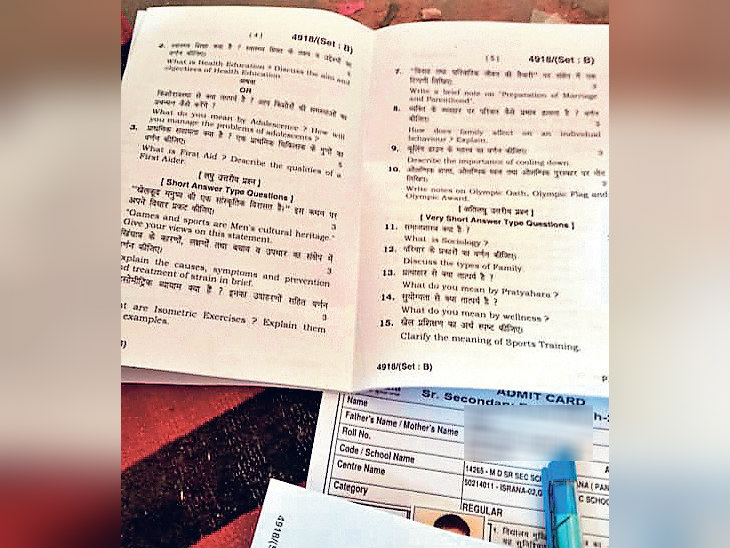 ( 4 )
4918/(Set : B)
2. स्वास्थ्य शिक्षा क्या है ? स्वास्थ्य शिक्षा के लक्ष्य व उद्देश्यों का
वर्णन कीजिए।
5
What is Health Education ? Discuss the aim and
objectives of Health Education.
अथवा
OR
किशोरावस्था से क्या तात्पर्य है ? आप किशोरों की समस्याओं का
प्रबन्धन कैसे करेंगे ?
What do you mean by Adolescence ? How will
you manage the problems of adolescents ?
3. प्राथमिक सहायता क्या है ? एक प्राथमिक चिकित्सक के गुणों का
वर्णन कीजिए।
5
What is First Aid ? Describe the qualities of a
First Aider.
[ लघु उत्तरीय प्रश्न ]
[ Short Answer Type Questions ]
"खेलकूद मनुष्य की एक सांस्कृतिक विरासत है।" इस कथन पर
अपने विचार प्रकट कीजिए।
3
"Games and sports are Men's cultural heritage."
Give your views on this statement.
खिंचाव के कारणों, लक्षणों तथा बचाव व उपचार का संक्षेप में
वर्णन कीजिए।
3
xplain the causes, symptoms and prevention
nd treatment of strain in brief.
सोमीट्रिक व्यायाम क्या है ? इनका उदाहरणों सहित वर्णन
3
t are Isometric Exercises ? Explain them
examples.
( 5 )
4918/(Set : B)
7. "विवाह तथा पारिवारिक जीवन की तैयारी" पर संक्षेप में एक
टिप्पणी लिखिए।
3
Write a brief note on "Preparation of Marriage
and Parenthood".
8. व्यक्ति के व्यवहार पर परिवार कैसे प्रभाव डालता है ? वर्णन
कीजिए।
3
How does family affect on an individual
behaviour ? Explain.
9. कूलिंग डाउन के महत्व का वर्णन कीजिए।
3
Describe the importance of cooling down.
10. ओलम्पिक शपथ, ओलम्पिक ध्वज तथा ओलम्पिक पुरस्कार पर नोट
लिखिए।
3
Write notes on Olympic Oath, Olympic Flag and
Olympic Award.
[ अतिलघु उत्तरीय प्रश्न ]
[ Very Short Answer Type Questions ]
11. समाजशास्त्र क्या है ?
What is Sociology ?
12. परिवार के प्रकारों का वर्णन कीजिए।
Discuss the types of Family.
13. प्रत्याहार से क्या तात्पर्य है ?
What do you mean by Pratyahara ?
14. सुयोग्यता से क्या तात्पर्य है ?
What do you mean by wellness ?
15. खेल प्रशिक्षण का अर्थ स्पष्ट कीजिए।
Clarify the meaning of Sports Training.
4918/(Set : B)
P
ADMIT CARD
Sr. Secondary
Name
Father's Name / Mother's Name
Roll No.
Code / School Name
14265 - M D SR SEC SC
ANA ( PAN
Centre Name
50214011 - ISRANA-02,G
C SCHOO
Category
REGULAR
1. विद्यालय
यह
4918/(S